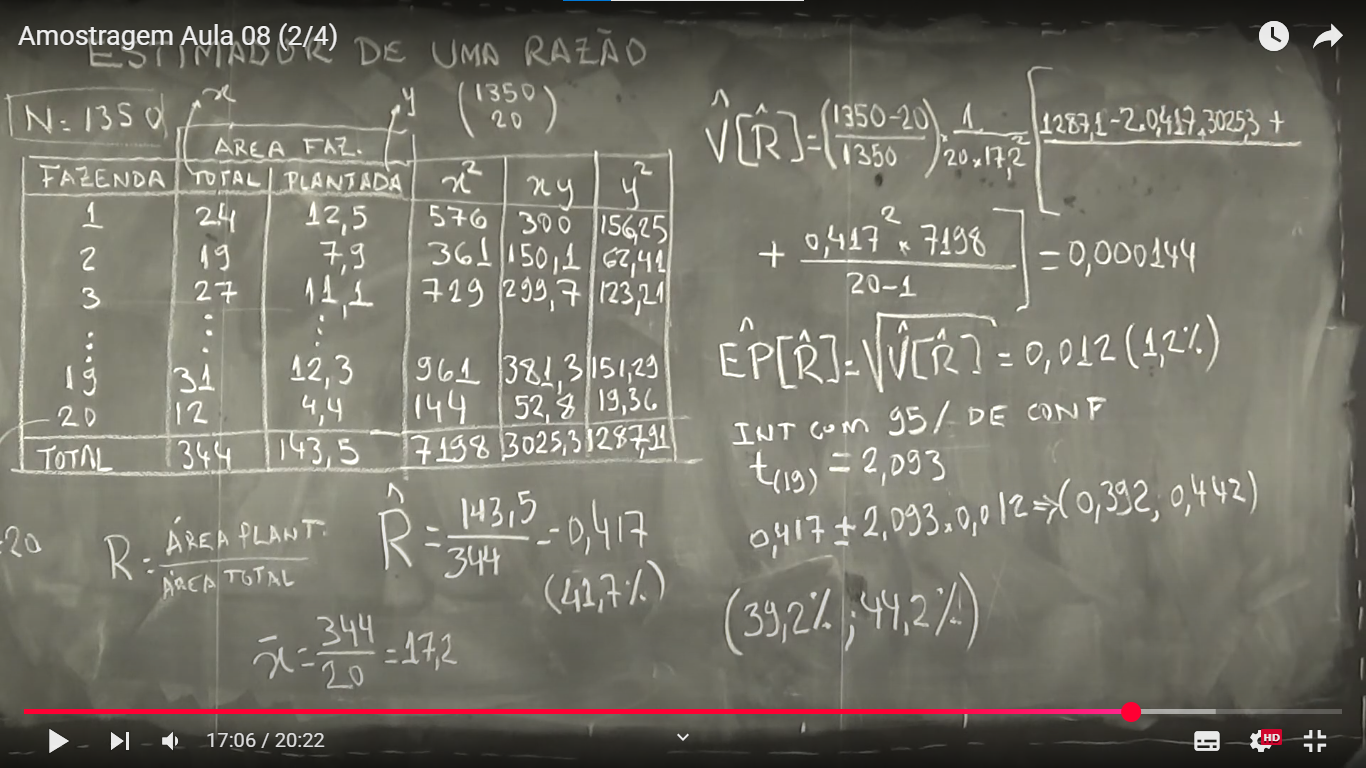 Amostragem Aula 08 (2/4)
ESTIMADOR DE UMA RAZÃO
N = 1350
x
y
(1350
20)
ÁREA FAZ.
FAZENDA TOTAL PLANTADA x² xy y²
1 24 12,5 576 300 156,25
2 19 7,9 361 150,1 62,41
3 27 11,1 729 299,7 123,21
⋮ ⋮ ⋮
19 31 12,3 961 381,3 151,29
20 12 4,4 144 52,8 19,36
TOTAL 344 143,5 7198 3025,3 1287,91
20
R = ÁREA PLANT. / ÁREA TOTAL
R̂ = 143,5 / 344 = 0,417
(41,7%)
x̄ = 344 / 20 = 17,2
V̂[R̂] = (1350-20 / 1350) . 1 / 20 × 17,2² [1287,1 - 2.0,417.3025,3 +
+ 0,417² × 7198 / 20-1] = 0,000144
ÊP[R̂] = √V̂[R̂] = 0,012 (1,2%)
INT COM 95/ DE CONF
t(19) = 2,093
0,417 ± 2,093.0,012 ⇒ (0,392; 0,442)
(39,2% ; 44,2%)
17:06 / 20:22
HD